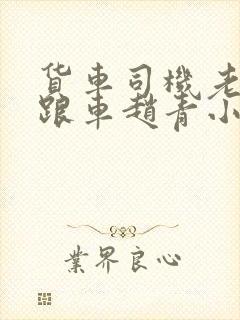 货車司機老
跟車趙青小
業界良心